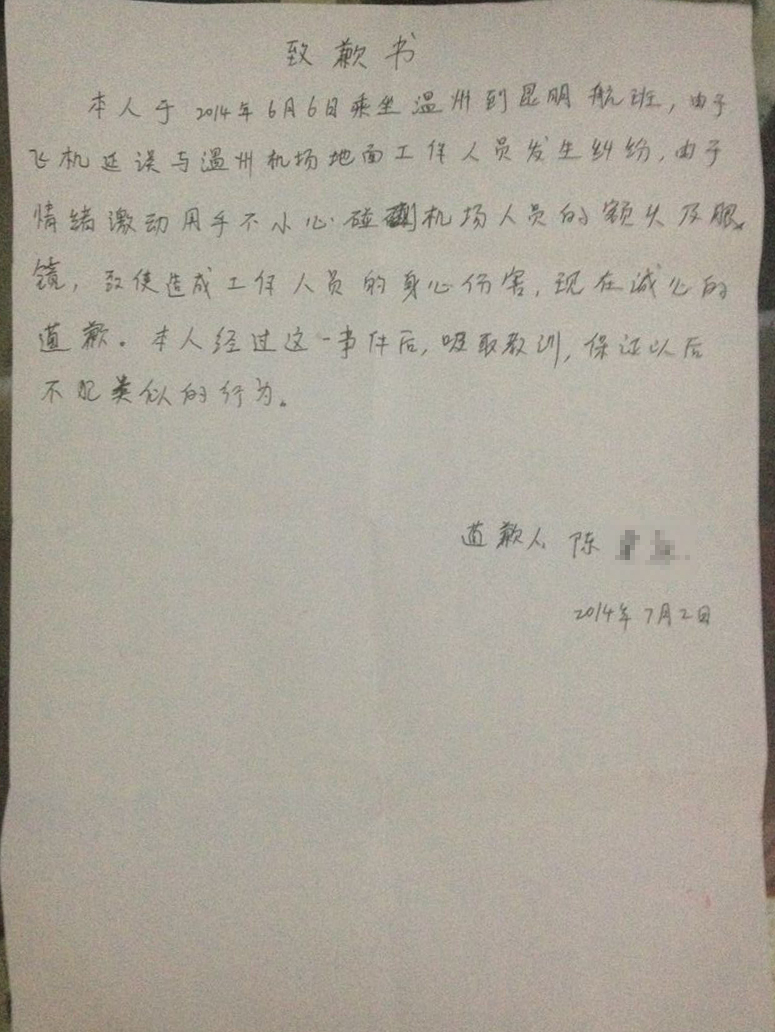 致歉书
本人于2014年6月6日乘坐温州到昆明航班，由于
飞机延误与温州机场地面工作人员发生纠纷，由于
情绪激动用手不小心碰到机场人员的额头及眼
镜，致使造成工作人员的身心伤害，现在诚心的
道歉。本人经过这一事件后，吸取教训，保证以后
不犯类似的行为。
道歉人 陈
2014年7月2日